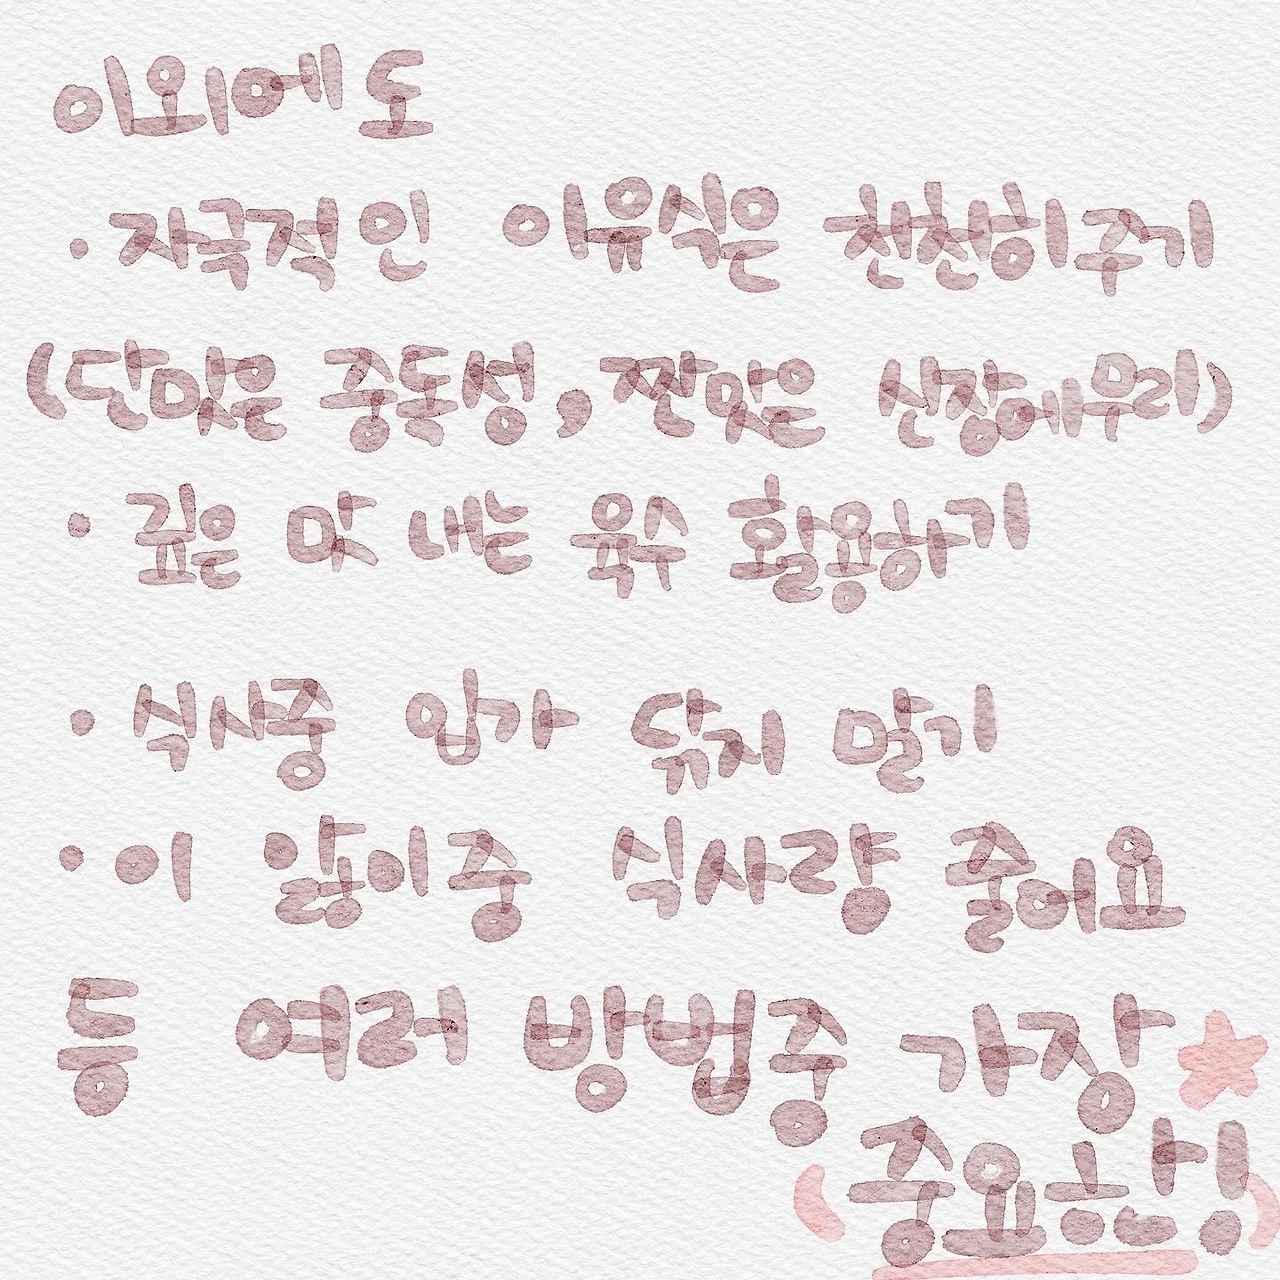 이외에도
· 자극적인 이유식은 천천히주기
(단맛은 중독성, 짠맛은 신장에무리)
· 깊은 맛 내는 육수 활용하기
· 식사중 입가 닦지 말기
· 이 앓이중 식사량 줄어요
등 여러 방법중 가장
중요한건